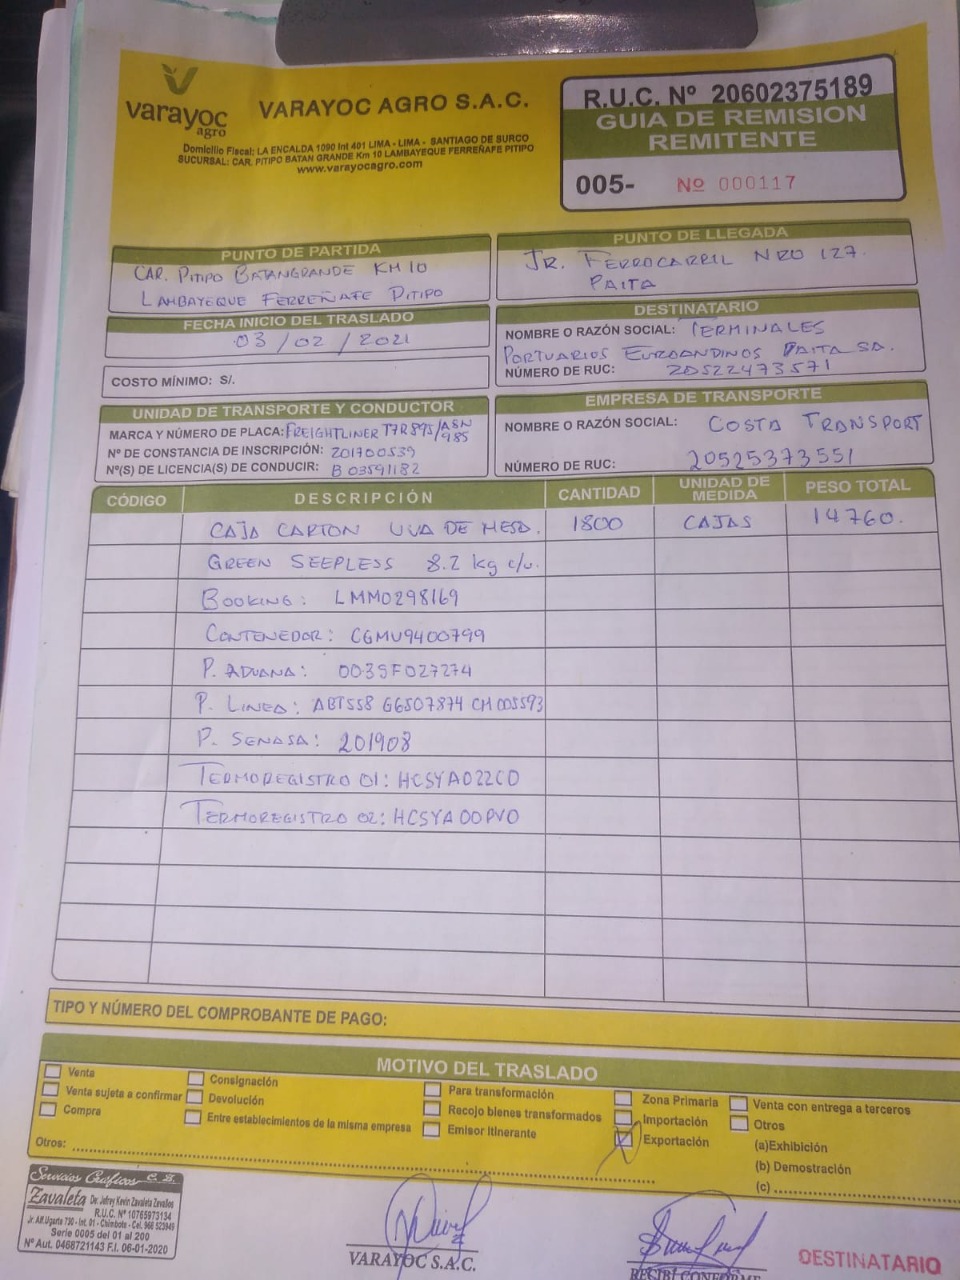 varayoc
agro
VARAYOC AGRO S.A.C.
Domicilio Fiscal: LA ENCALDA 1090 Int 401 LIMA - LIMA - SANTIAGO DE SURCO
SUCURSAL: CAR. PITIPO BATAN GRANDE Km 10 LAMBAYEQUE FERREÑAFE PITIPO
www.varayocagro.com
R.U.C. Nº 20602375189
GUIA DE REMISION
REMITENTE
005- Nº 000117
PUNTO DE PARTIDA
CAR. PITIPO BATANGRANDE KM 10
LAMBAYEQUE FERREÑAFE PITIPO
PUNTO DE LLEGADA
JR. FERROCARRIL NRO 127.
PAITA
FECHA INICIO DEL TRASLADO
03 / 02 / 2021
COSTO MÍNIMO: S/.
DESTINATARIO
NOMBRE O RAZÓN SOCIAL: TERMINALES
PORTUARIOS EUROANDINOS PAITA SA.
NÚMERO DE RUC: 20522473571
UNIDAD DE TRANSPORTE Y CONDUCTOR
MARCA Y NÚMERO DE PLACA: FREIGHTLINER T7R895/ASN
985
Nº DE CONSTANCIA DE INSCRIPCIÓN: 201700539
Nº(S) DE LICENCIA(S) DE CONDUCIR: B 03591182
EMPRESA DE TRANSPORTE
NOMBRE O RAZÓN SOCIAL: COSTA TRANSPORT
NÚMERO DE RUC: 20525373551
CÓDIGO DESCRIPCIÓN CANTIDAD UNIDAD DE MEDIDA PESO TOTAL
CAJA CARTON UVA DE MESA. 1800 CAJAS 14760.
GREEN SEEPLESS 8.2 kg c/u.
BOOKING: LMM0298169
CONTENEDOR: CGMU9400799
P. ADUANA: 0035F027274
P. LINEA: ABT558 G6507874 CH005593
P. SENASA: 201908
TERMOREGISTRO 01: HCSYA022C0
TERMOREGISTRO 02: HCSYA00PV0
TIPO Y NÚMERO DEL COMPROBANTE DE PAGO:
MOTIVO DEL TRASLADO
Venta
Venta sujeta a confirmar
Compra
Consignación
Devolución
Entre establecimientos de la misma empresa
Para transformación
Recojo bienes transformados
Emisor Itinerante
Zona Primaria
Importación
Exportación
Venta con entrega a terceros
Otros
(a)Exhibición
(b) Demostración
(c)
Otros:
Servicios Gráficos C. Z.
Zavaleta De: Jefrey Kevin Zavaleta Zevallos
R.U.C. Nº 10765973134
Jr. Alf. Ugarte 730 - Int. 01 - Chimbote - Cel. 966 523949
Serie 0005 del 01 al 200
Nº Aut. 0468721143 F.I. 06-01-2020
VARAYOC S.A.C.
RECIBI CONFORME
DESTINATARIO